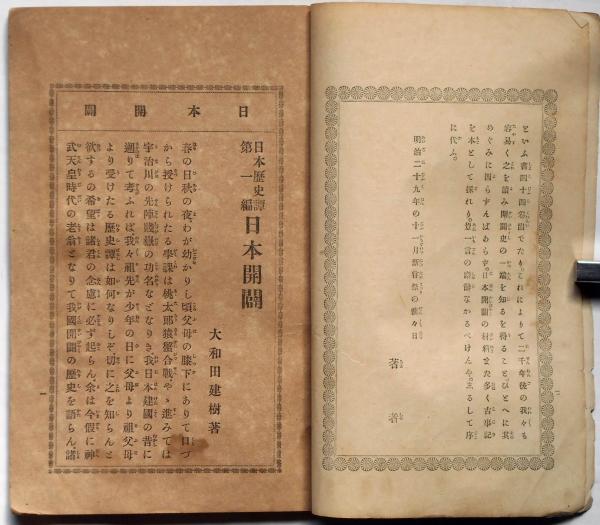 といふ書四十四卷出でたり。これによりて二千年後の我々も
容易く之を讀み開闢史の一端を知るを得ること、ひとへに其
めぐみに因らずんばあらず。日本開闢の材料また多く古事記
を本として採れり。豈一言の
なかるべけんや。
るして序
に代ふ。
明治二十九年の十一月新嘗祭の
々日
著者
日本開闢
日本歷史譚
第一編
日本開闢
大和田建樹著
春の日秋の夜わが幼かりし頃父母の膝下にありて口づ
から授けられたる事課は桃太郎猿蟹合戰やゝ進みては
宇治川の先陣
の功名などなりき我日本建國の昔に
遡りて考ふれば我々祖先が少年の日に父母より祖父母
より受けたる歷史譚は如何なりしぞ切に之を知らんと
欲するの希望は諸君の念慮に必ず起らん余は今假に神
武天皇時代の老翁となりて我國開闢の歷史を語らん。諸
一